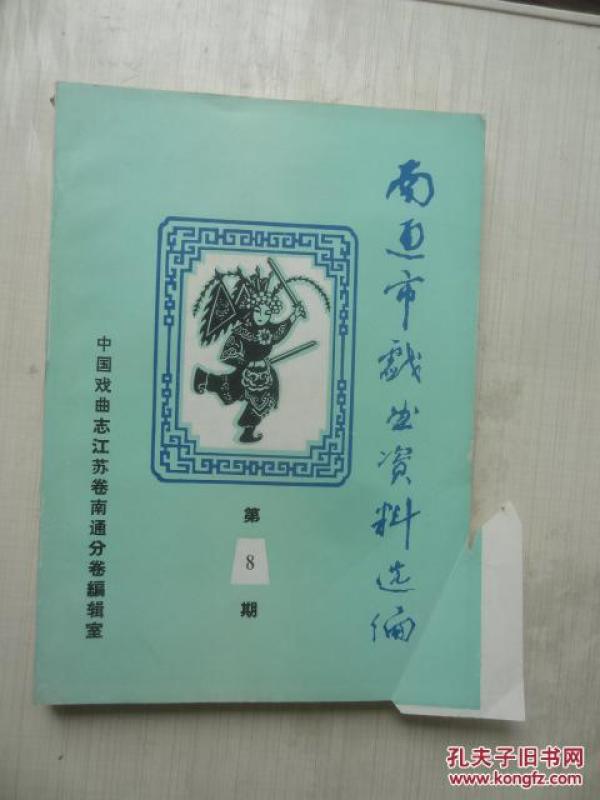 南通市戏曲资料选编
第
8
期
中国戏曲志江苏卷南通分卷编辑室
孔夫子旧书网
www.kongfz.com